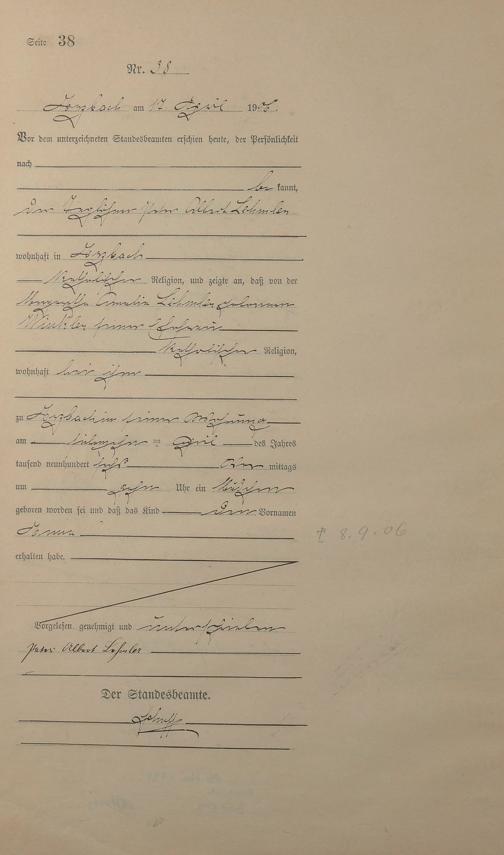 Seite 38
Nr. 38
am 17 April 1906.
Vor dem unterzeichneten Standesbeamten erschien heute, der Persönlichkeit
nach
be kannt,
der Peter Albert Lehmler
wohnhaft in
katholischer Religion, und zeigte an, daß von der
Margaretha Lehmler geborenen
Winkler seiner Ehefrau
katholischer Religion,
wohnhaft bei ihm
zu in seiner Wohnung
am April des Jahres
tausend neunhundert sechs mittags
um zehn Uhr ein Mädchen
geboren worden sei und daß das Kind den Vornamen
Anna
† 8.9.06
erhalten habe.
Vorgelesen, genehmigt und unterschrieben
Peter Albert Lehmler
Der Standesbeamte.